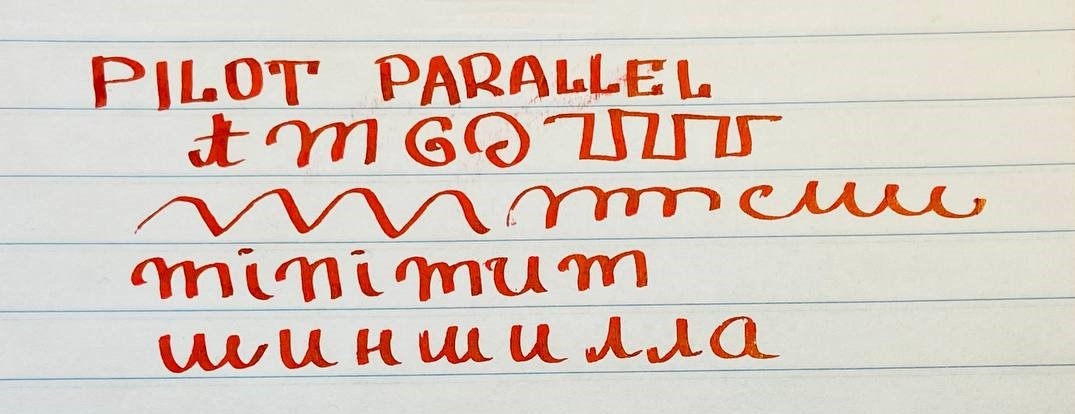 PILOT PARALLEL
t m
minimum
шиншилла